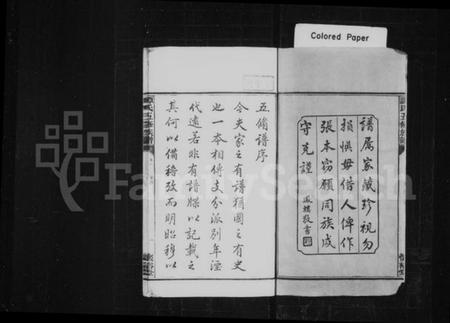 Colored Paper
譜屬家藏珍視勿
損慎毋借人俾作
張本竊願同族咸
守先謹
敬書
五修譜序
今夫家之有譜猶國之有史
也一本相傳支分派別年湮
代遠若非有譜牒以記載之
其何以備稽攷而明昭穆以
FamilySearch